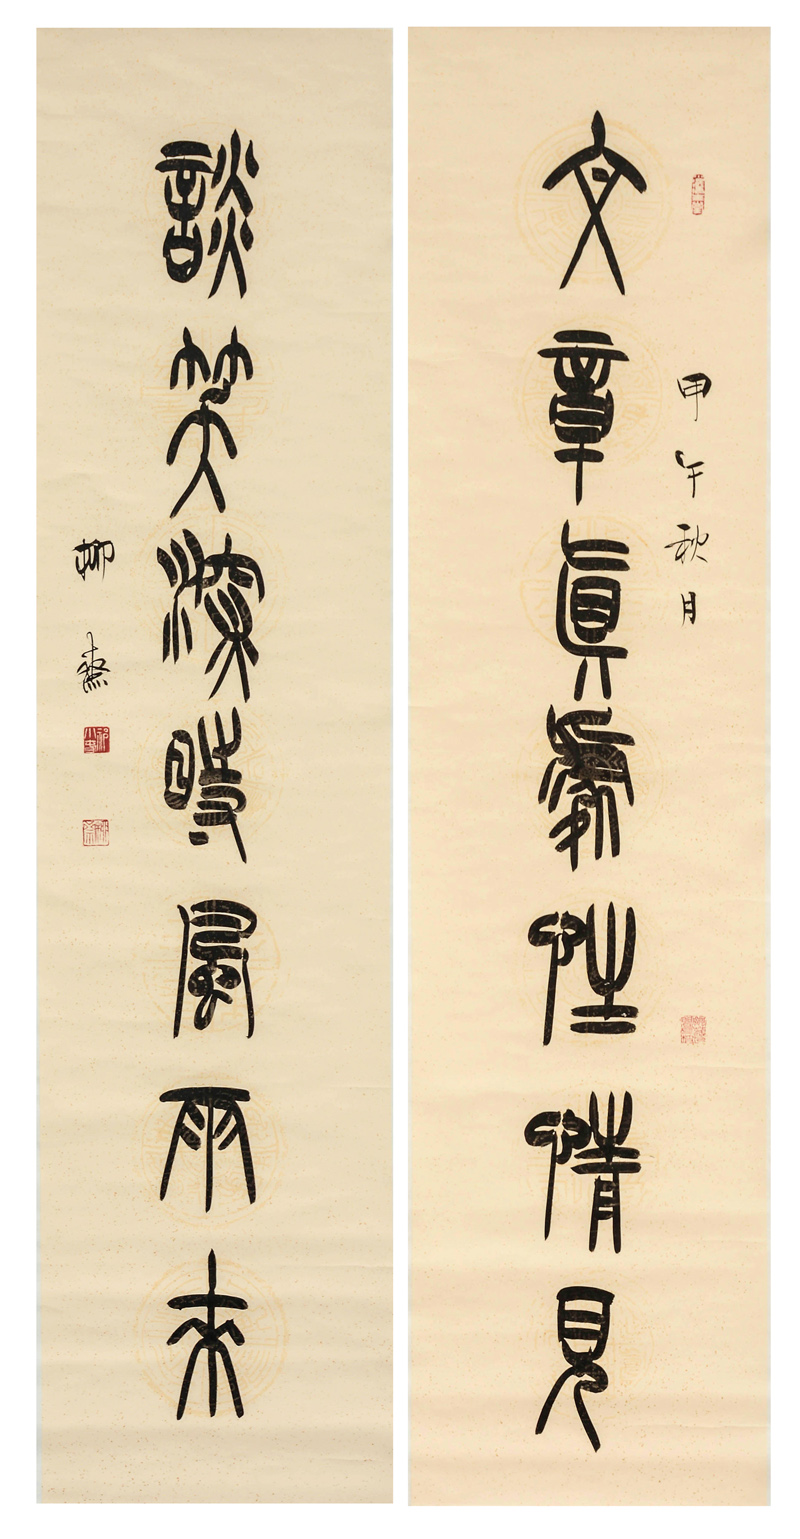 文章真處性情見
甲午秋月
談笑深時風雨来
柳